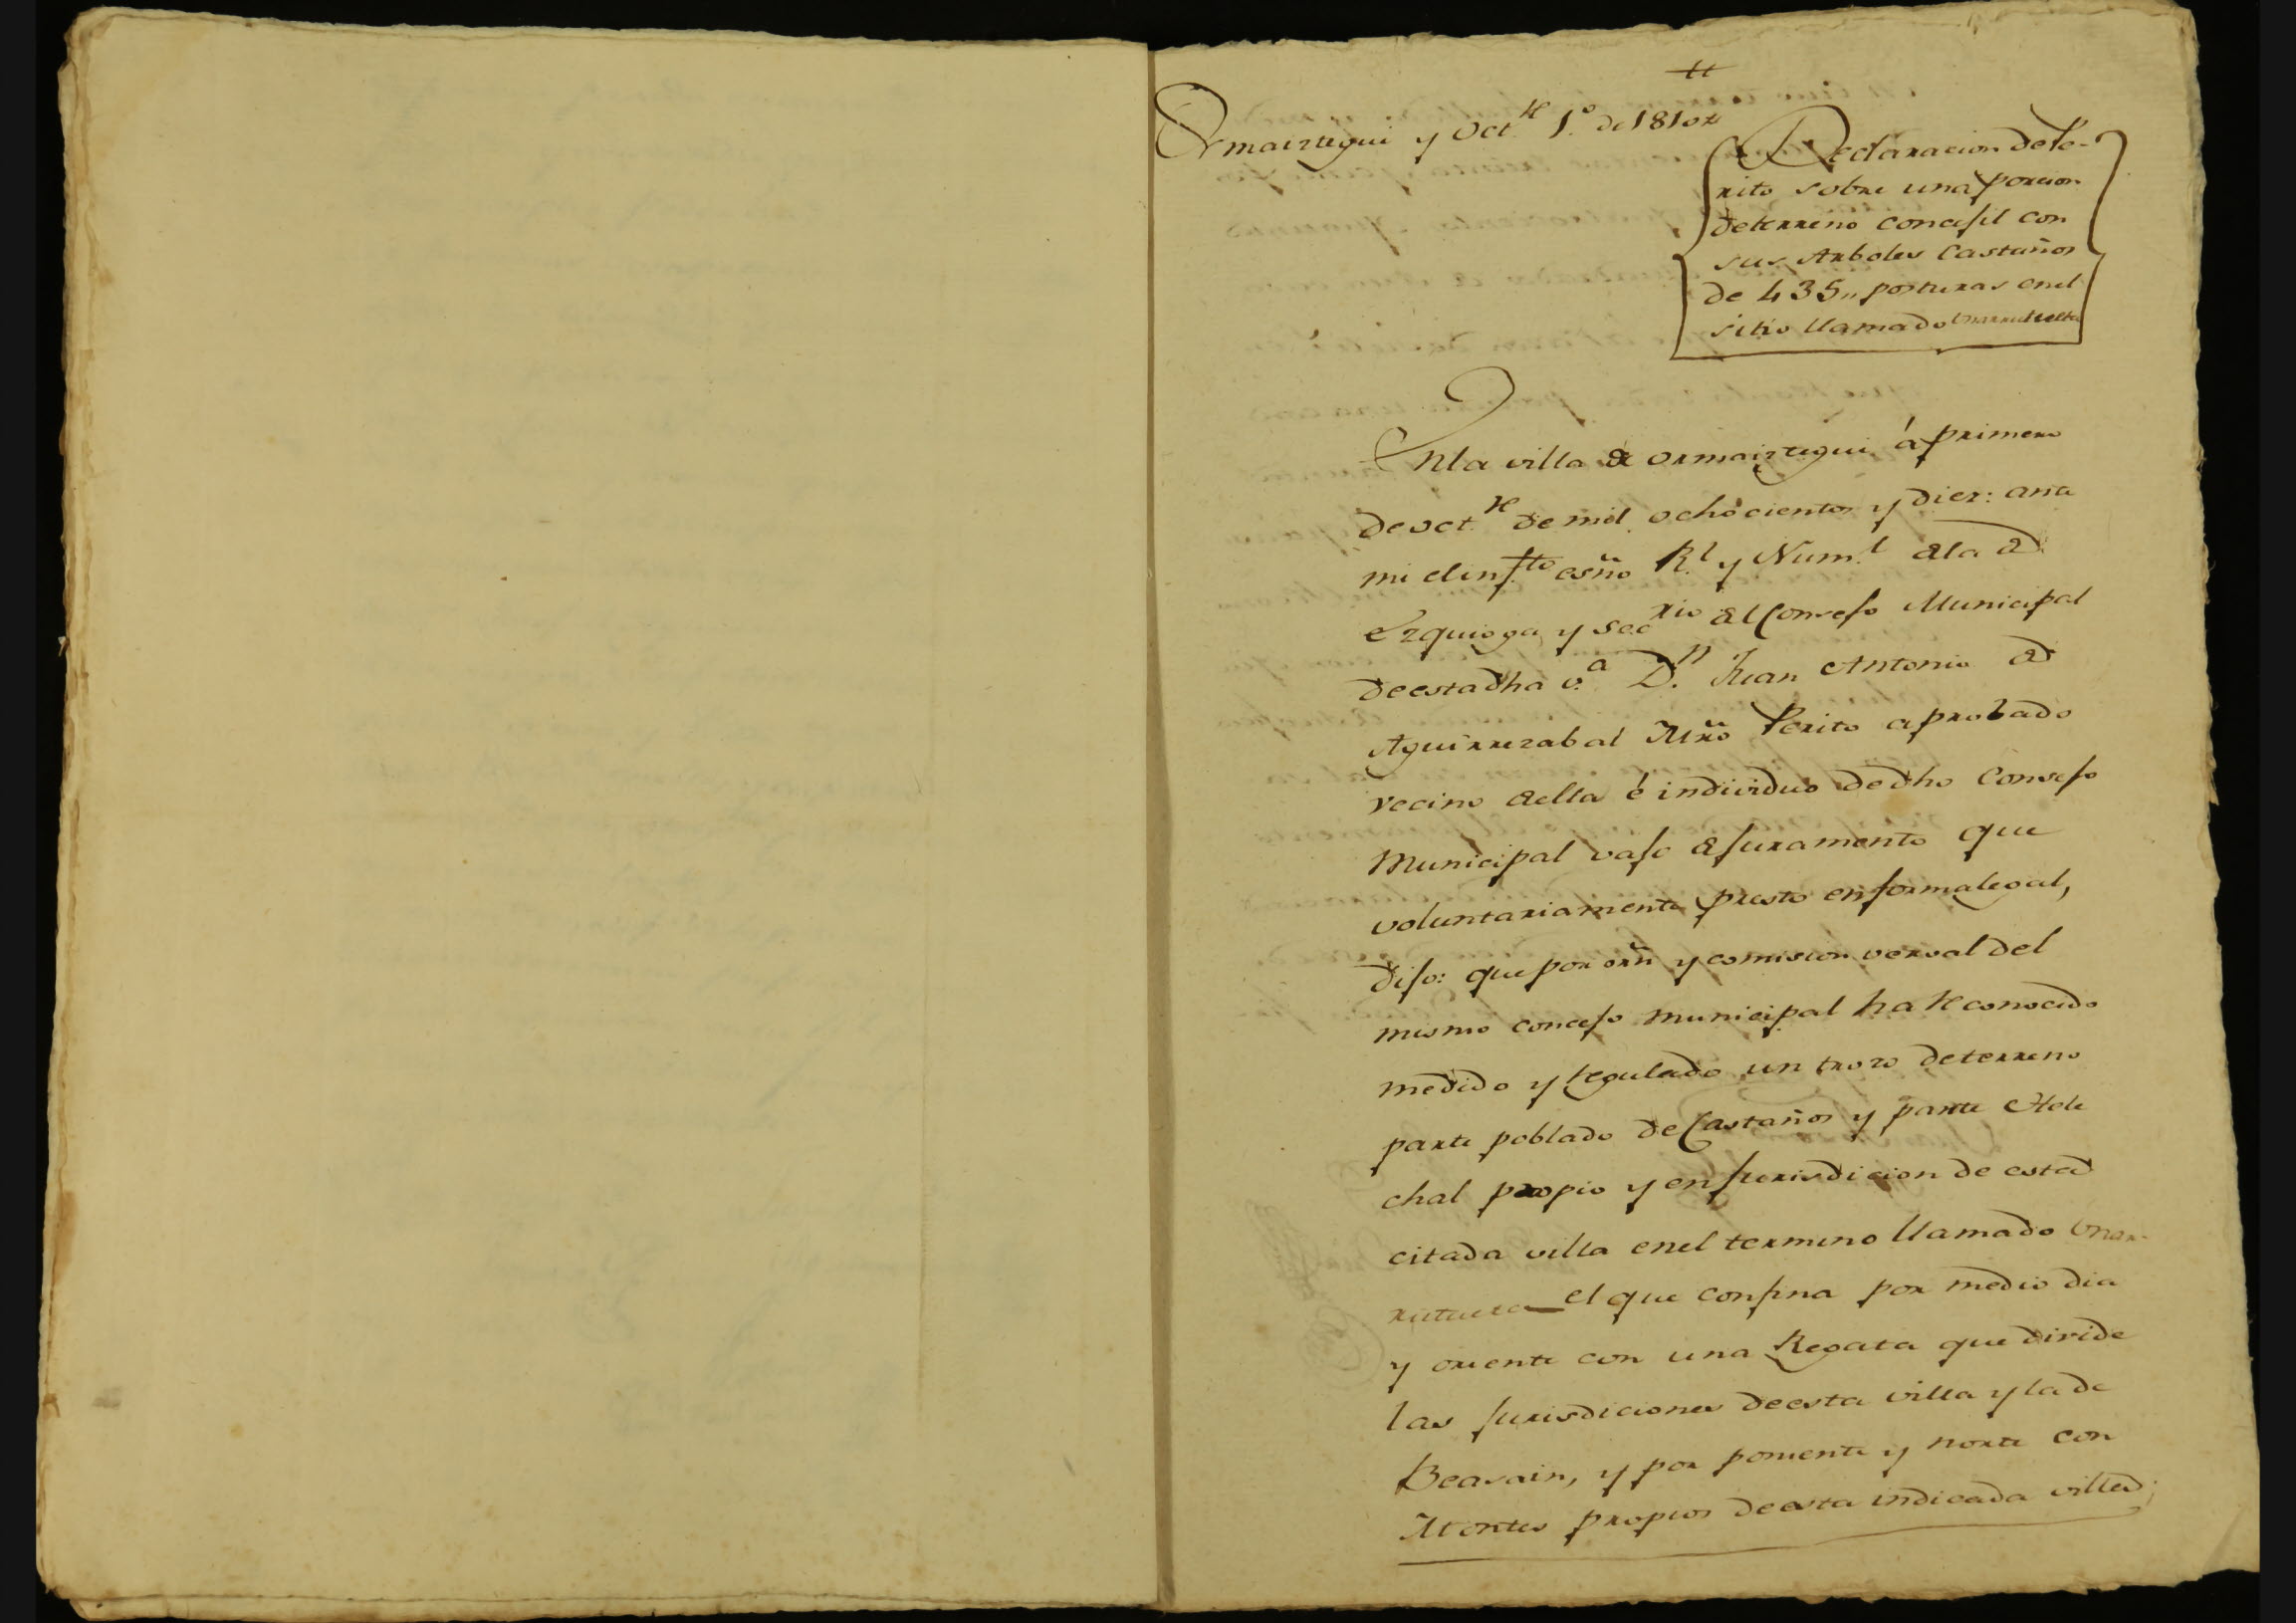 Ormaiztegui y Oct.re 1.º de 1810
Declaracion de Pe-
rito sobre una porcion
de terreno concejil con
sus Arboles Castaños
de 435,, posturas en el
sitio llamado
En la villa de Ormaiztegui á primero
de oct.re de mil ochocientos y diez: ante
mi el infto esño R.l y Num.l de la de
Ezquioga, y secrio del Consejo Municipal
de esta dha v.a D.n Juan Antonio de
Aguirrezabal Mro Perito aprobado
vecino de ella é individuo de dho Consejo
Municipal vajo de juramento que
voluntariamente presto en forma legal,
dijo: que por orñ y comision verval del
mismo concejo municipal ha reconocido
medido y regulado un trozo de terreno
parte poblado de Castaños y parte Ele
chal propio y en jurisdicion de esta
citada villa en el termino llamado Unar-
rutuera el que confina por medio dia
y oriente con una Regata que divide
las jurisdiciones de esta villa y la de
Beasain, y por poniente y norte con
Montes propios de esta indicada villa;